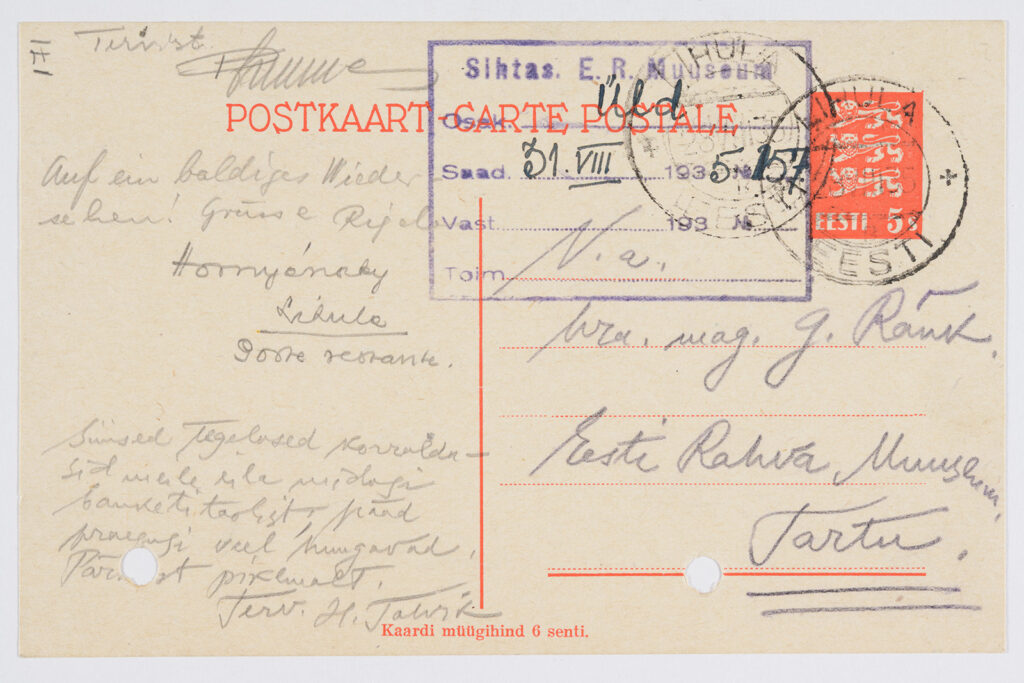 Tervist.
POSTKAART-CARTE POSTALE
Sihtas. E. R. Muuseum
Osak. Üld
Saad. 31. VIII 193 5 № 157
Vast. 193 №
Toim.
LIHULA
EESTI
LIHULA
EESTI
EESTI 5 s
Auf ein baldiges Wieder
sehen! Grüsse
Lihula
Poste restante.
Siinsed tegelased korralda-
sid meile eila midagi
banketitaolist, pääd
praegugi veel huugavad.
Pärnust pikemalt.
Terv. H. Tahvik
N. a.
hra. mag. G. Ränk.
Eesti Rahva Muuseum,
Tartu.
Kaardi müügihind 6 senti.